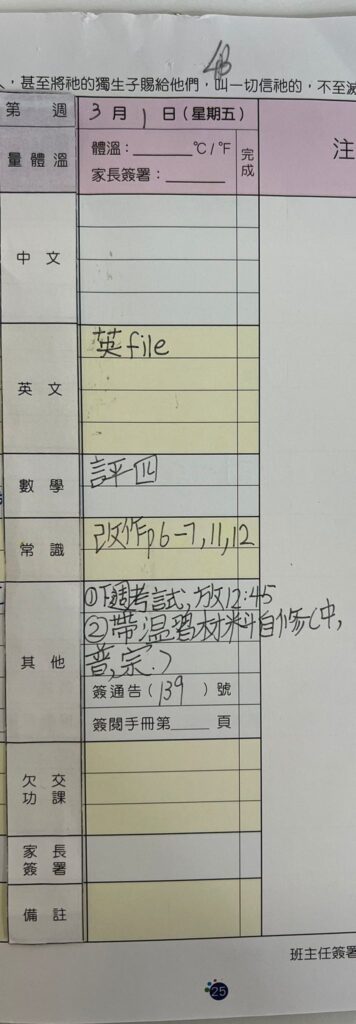 4B
，甚至將祂的獨生子賜給他們，叫一切信祂的，不至滅
第 週 3 月 1 日（星期五）
量體溫 體溫：______°C / °F 完成 注
家長簽署：______
中文
英文 英file
數學 評四
常識 改作p6-7,11,12
其他 ①下週考試，放12:45
②帶温習材料自修(中，
普，宗.)
簽通告( 139 )號
簽閱手冊第____頁
欠交功課
家長簽署
備註
班主任簽署
25